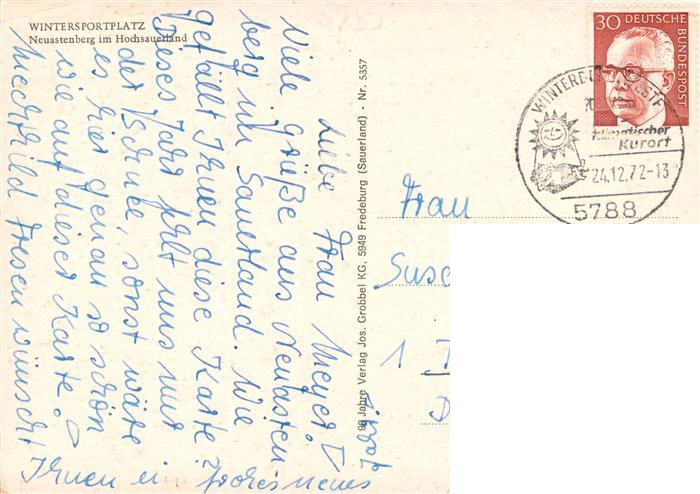 WINTERSPORTPLATZ
Neuastenberg im Hochsauerland
Liebe Frau Meyer!
Viele Grüße aus Neuasten
berg im Sauerland. Wie
gefällt Ihnen diese Karte?
Dieses Jahr fehlt uns nur
der Schnee, sonst wäre
es hier genau so schön
wie auf dieser Karte.
wünscht
Ihnen ein frohes neues
98 Jahre Verlag Jos. Grobbel KG, 5949 Fredeburg (Sauerland) - Nr. 5357
30 DEUTSCHE
BUNDESPOST
Klimatischer
Kurort
24.12.72-13
5788
Frau
1